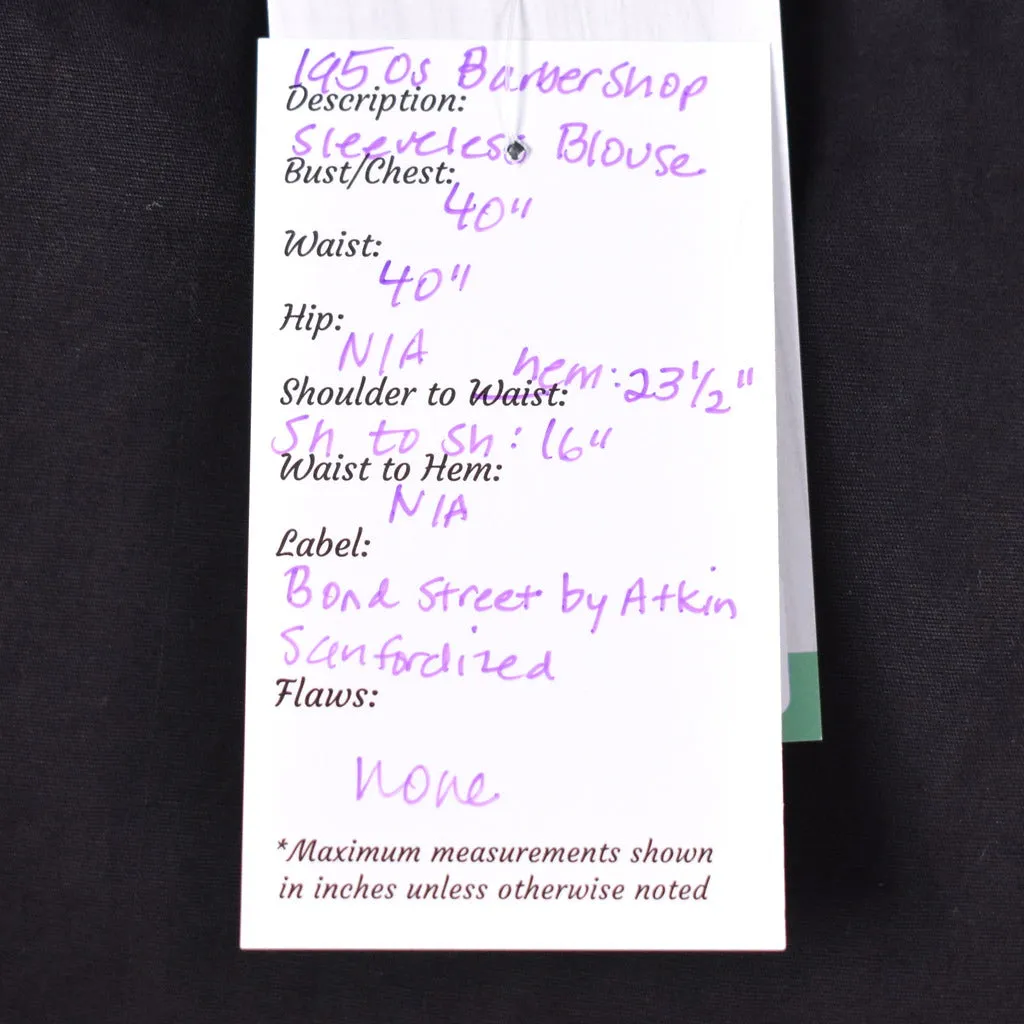 1950s Barbershop
Description:
Sleeveless Blouse
Bust/Chest:
40"
Waist:
40"
Hip:
N/A
hem: 23 1/2"
Shoulder to Waist:
Sh to sh: 16"
Waist to Hem:
N/A
Label:
Bond Street by Atkin
Sanfordized
Flaws:
none
*Maximum measurements shown
in inches unless otherwise noted